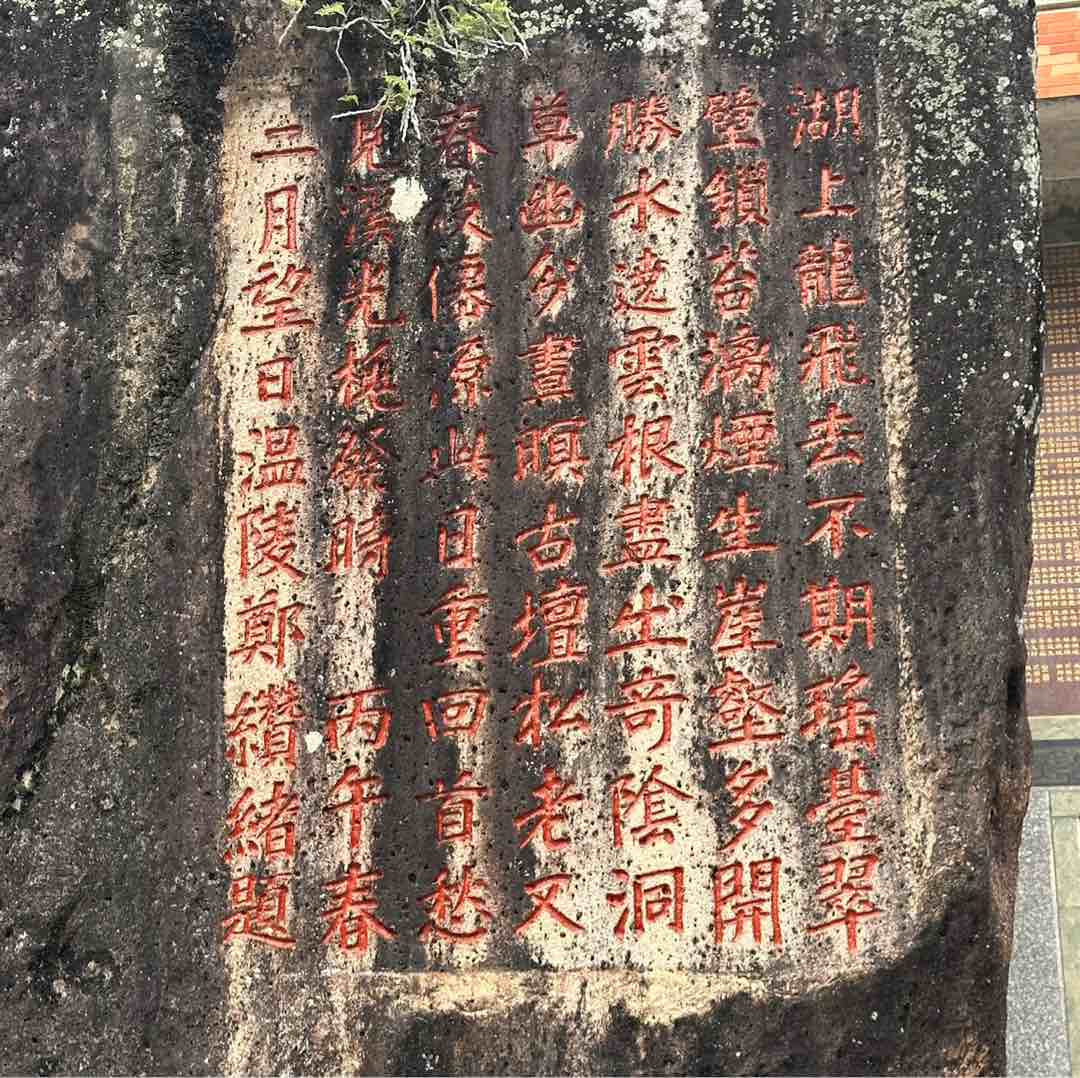 湖上龍飛去不期瑤臺翠
壁鎖苔漪煙生崖壑多開
勝水遶雲根盡出奇陰洞
草幽分晝暝古壇松老又
春枝僊源此日重回首愁
見溪光梃發時 丙午春
二月望日溫陵鄭纘緒題